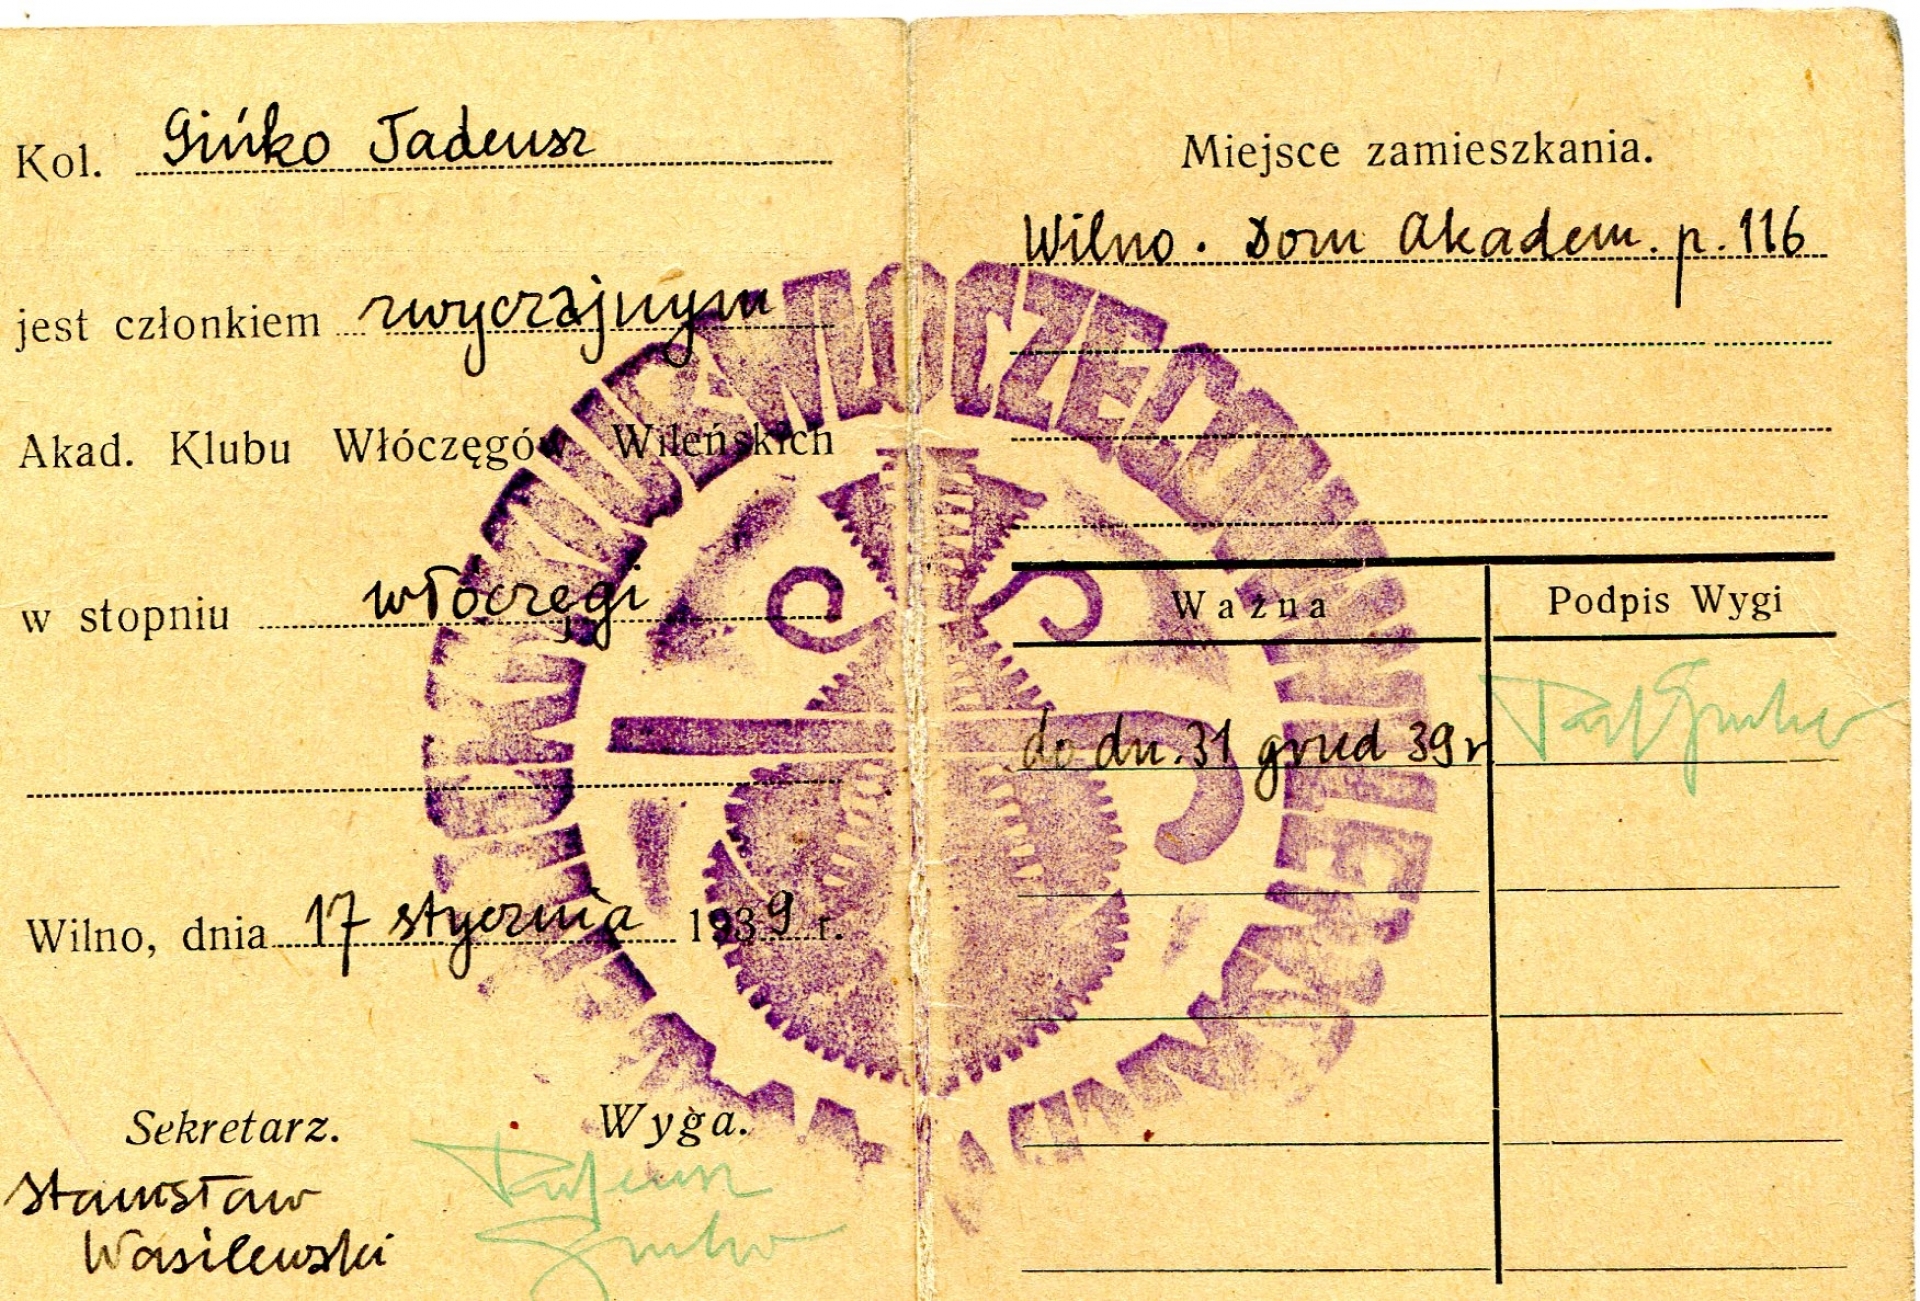 Kol. Gińko Tadeusz
jest członkiem zwyczajnym
Akad. Klubu Włóczęgów Wileńskich
w stopniu włóczęgi
Wilno, dnia 17 stycznia 1939 r.
Sekretarz. Wyga.
Stanisław
Wasilewski
Tadeusz
Miejsce zamieszkania.
Wilno. Dom Akadem. p. 116
Ważna Podpis Wygi
do dn. 31 grud 39 r
KLUB WŁÓCZĘGÓW